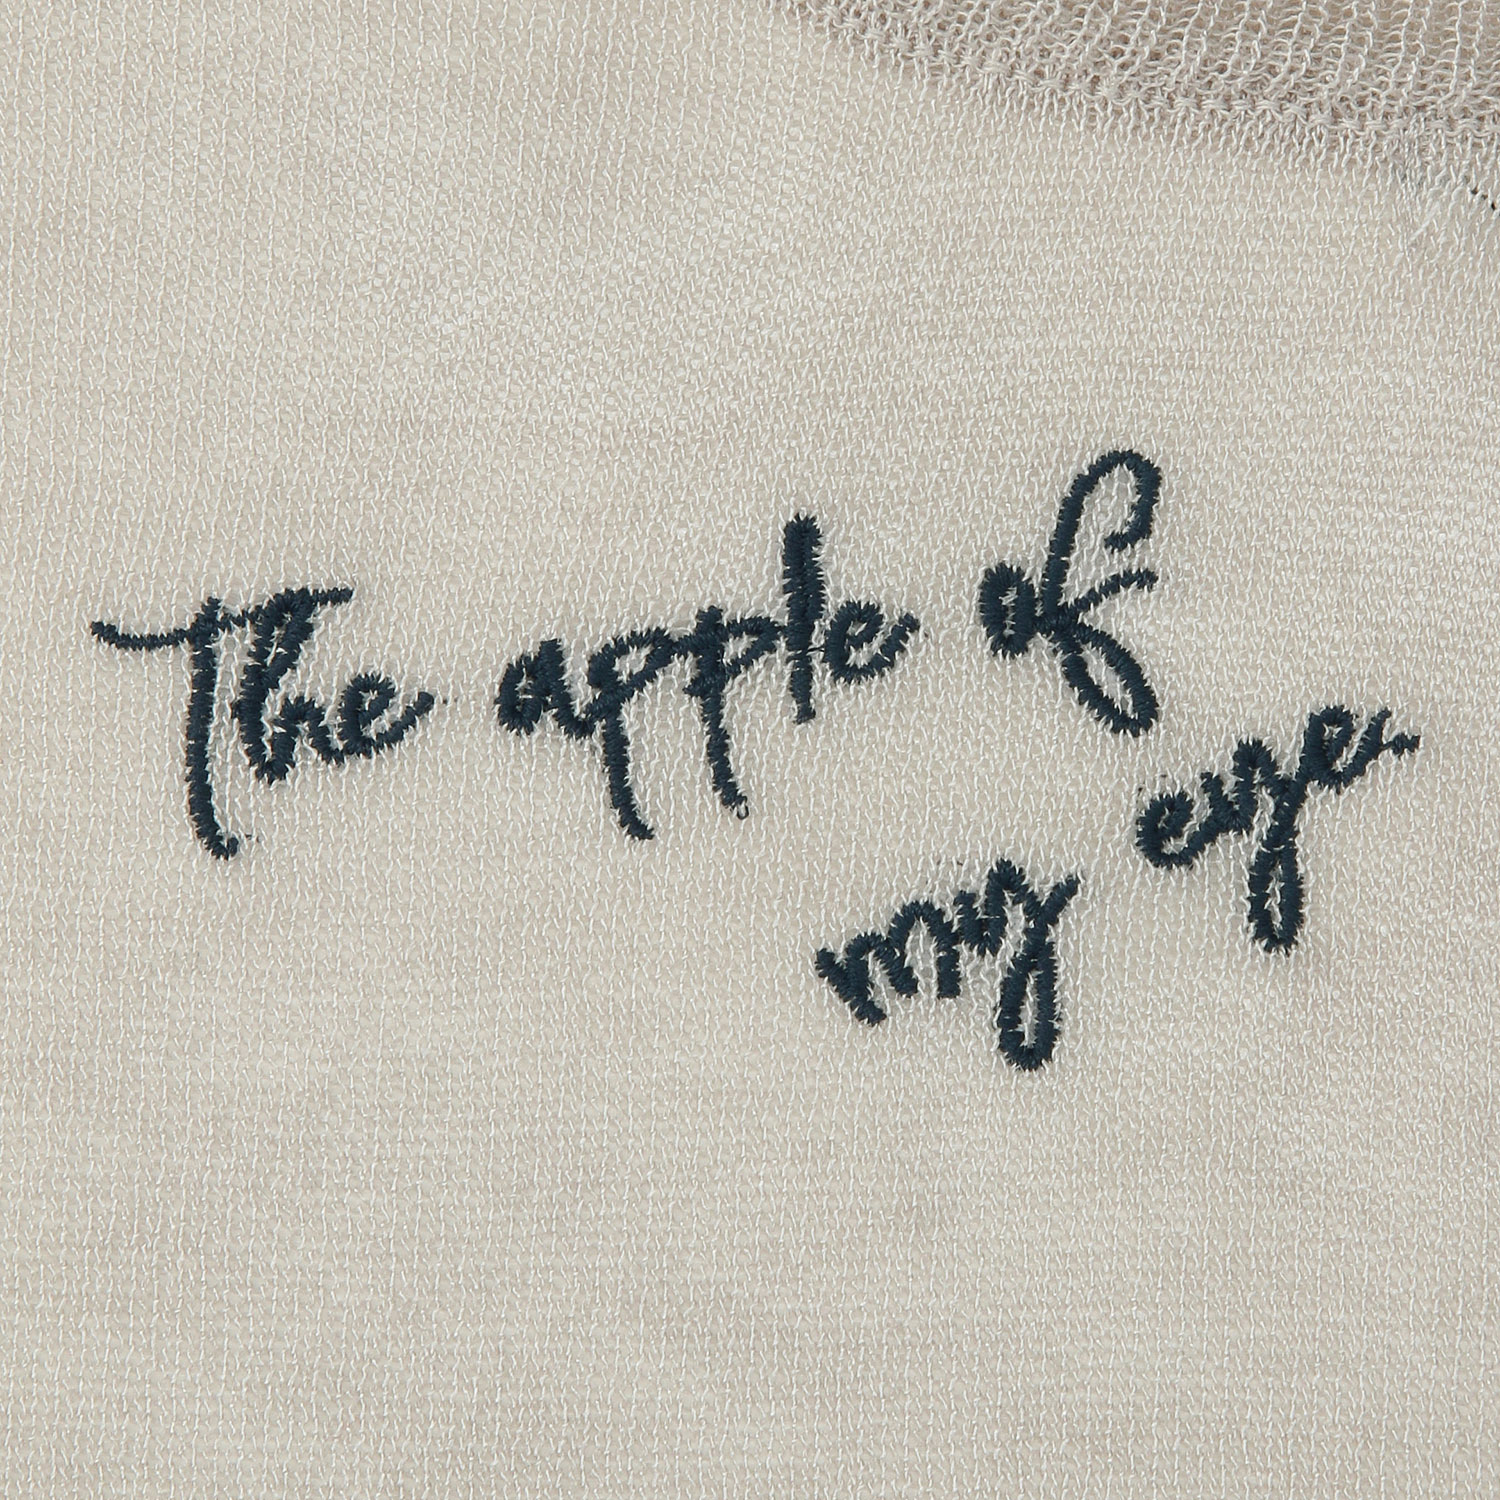 The apple of
my eye.